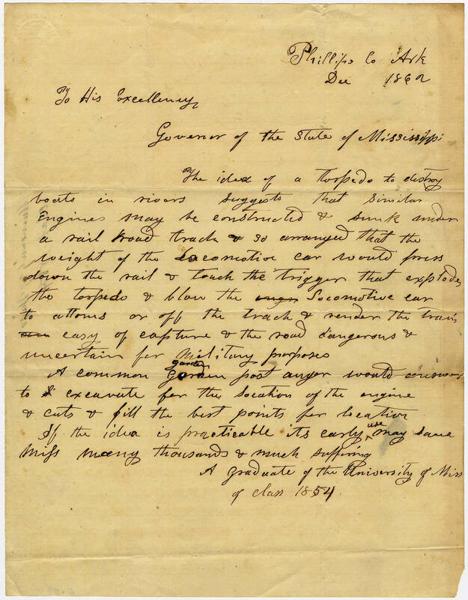 Phillips Co Ark
Dec 1862
To His Excellency,
Governor of the State of Mississippi
The idea of a torpedo to destroy
boats in rivers suggests that similar
Engines may be constructed & sunk under
a rail road track & so arranged that the
weight of the locomotive car would press
down the rail & touch the trigger that explodes
the torpedo & blow the Locomotive car
to attoms or off the track & render the train
easy of capture & the road dangerous &
uncertain for military purposes
garden
A common post auger would
to excavate for the location of the engine
& cuts & fill the best points for locating
use
If the idea is practicable its early may save
Miss many thousands & much suffering
A graduate of the University of Miss
of class 1854